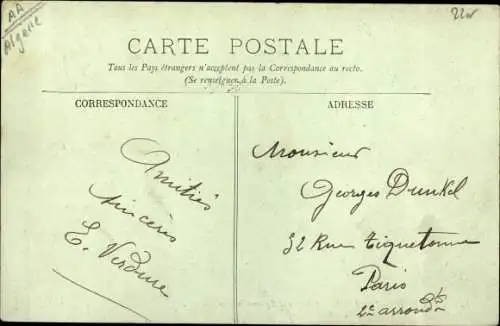 AA
Algérie
CARTE POSTALE
Tous les Pays étrangers n'acceptent pas la Correspondance au recto.
(Se renseigner à la Poste).
CORRESPONDANCE
Amitiés
sincères
E. Verdure
ADRESSE
Monsieur
Georges Dunkel
32 Rue Tiquetonne
Paris
2e arrond